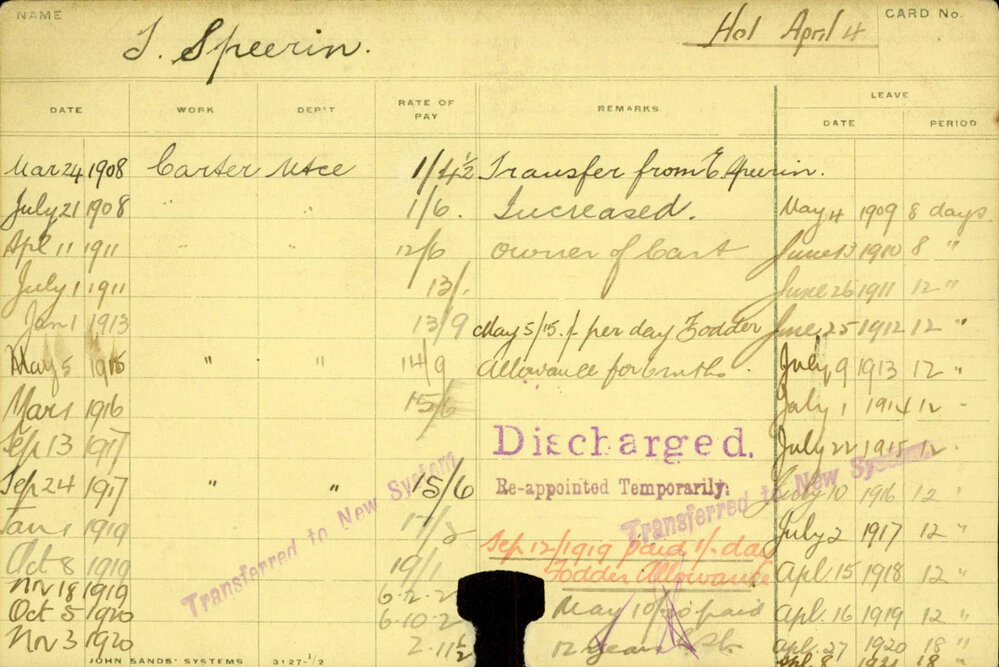 NAME
T. Speerin.
Hol April 4
CARD No.
DATE WORK DEP'T RATE OF PAY REMARKS LEAVE
DATE PERIOD
Mar 24 1908 Carter Mtce 1/4½ Transfer from E. Speerin.
July 21 1908 " " 1/6. Increased. May 4 1909 8 days.
Apl 11 1911 " " 12/6 Owner of Cart June 13 1910 8 "
July 1 1911 13/. June 26 1911 12 "
Jan 1 1913 13/9 May 5/15. 1/- per day Fodder June 25 1912 12 "
May 5 1915 " " 14/9 Allowance for 6 mths. July 9 1913 12 "
Mar 1 1916 15/6 July 1 1914 12 -
Sep 13 1917 Discharged. July 22 1915 12 -
Sep 24 1917 " " 15/6 Re-appointed Temporarily: July 10 1916 12 "
Transferred to New System
Transferred to New System
Jan 1 1919 17/2 Sep 12/1919 paid 1/- day July 2 1917 12 "
Oct 8 1919 19/1 Fodder Allowance Apl. 15 1918 12 "
Nv 18 1919 6.2.2
Oct 5 1920 6.10.2 May 10/20 paid Apl. 16 1919 12 "
Nv 3 1920 2.11½ 12 years Apl. 27 1920 18 "
JOHN SANDS' SYSTEMS 3127-1/2